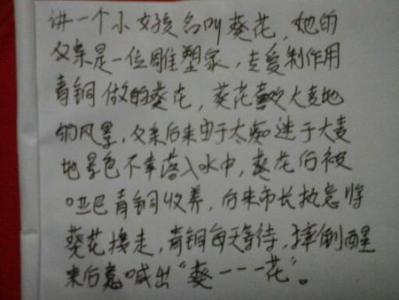 讲一个小女孩名叫葵花，她的
父亲是一位雕塑家，专爱制作用
青铜做的葵花，葵花喜欢大麦地
的风景，父亲后来由于太痴迷于大麦
地景色不幸落入水中，葵花后被
哑巴青铜收养，后来市长执意将
葵花接走，青铜每天等待，摔倒醒
来后竟喊出“葵———花”。